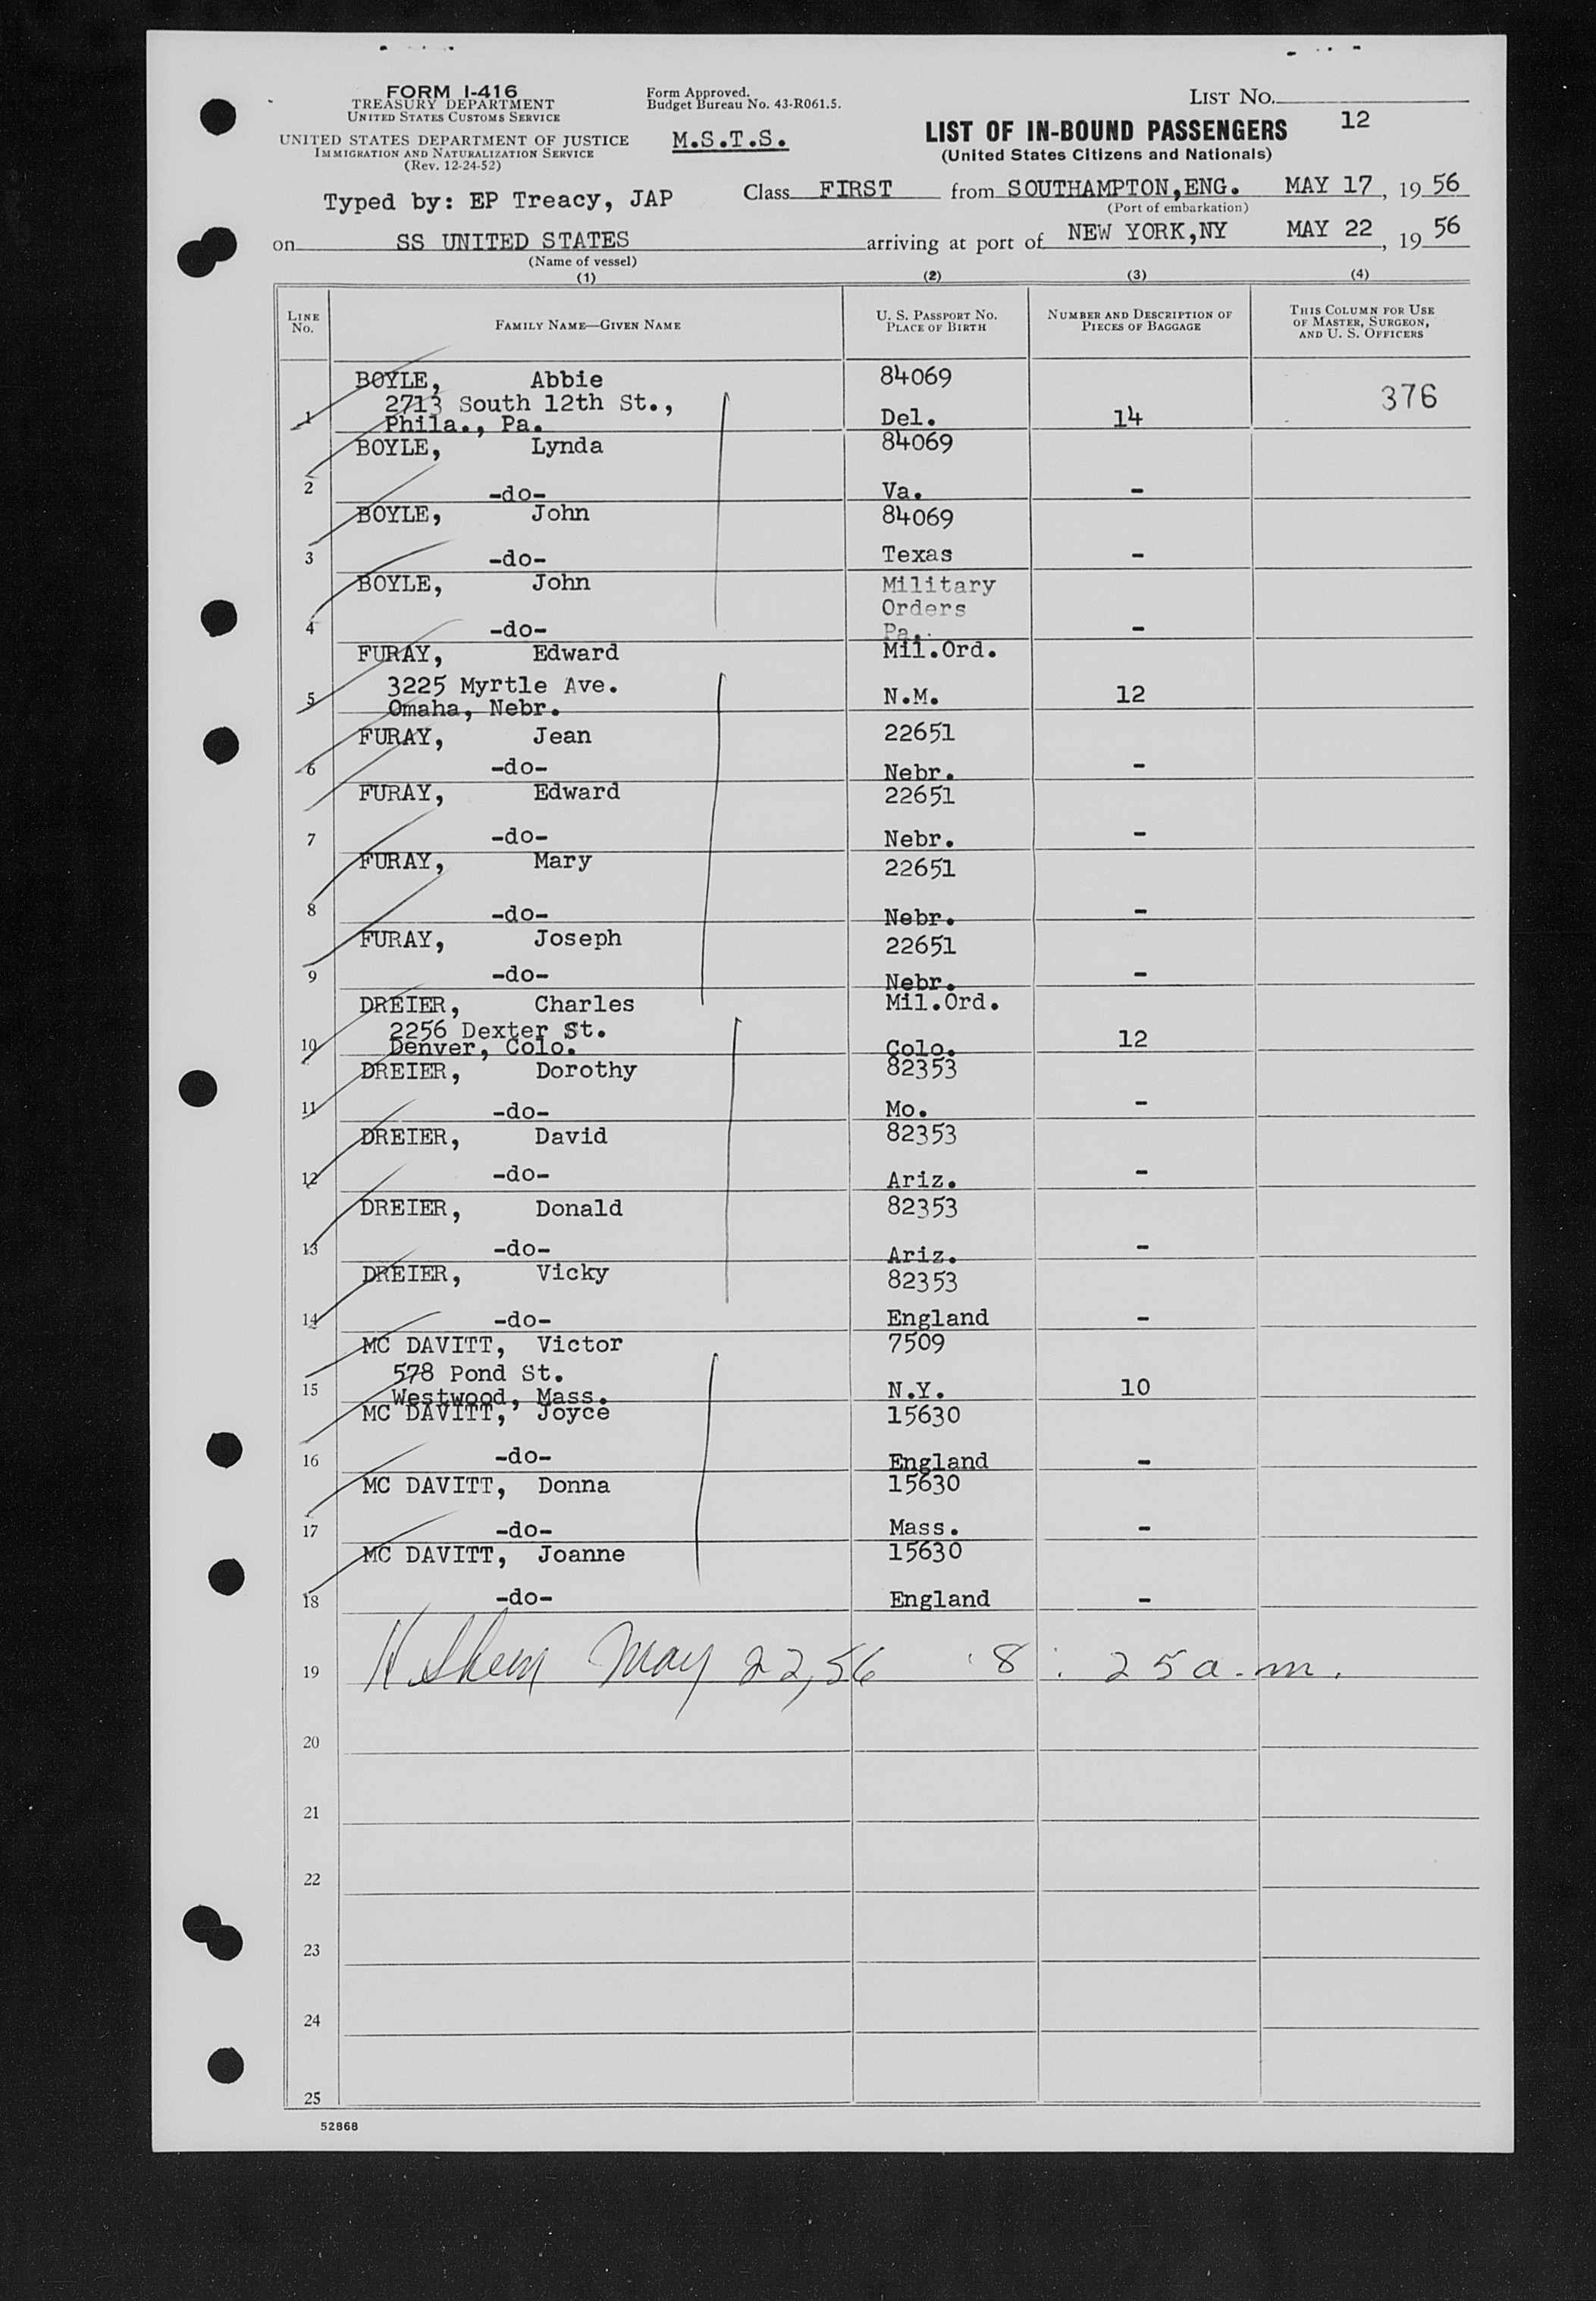 FORM I-416
TREASURY DEPARTMENT
UNITED STATES CUSTOMS SERVICE
UNITED STATES DEPARTMENT OF JUSTICE
IMMIGRATION AND NATURALIZATION SERVICE
(Rev. 12-24-52)
Form Approved.
Budget Bureau No. 43-R061.5.
M.S.T.S.
LIST NO.
12
LIST OF IN-BOUND PASSENGERS
(United States Citizens and Nationals)
Typed by: EP Treacy, JAP
Class FIRST from SOUTHAMPTON,ENG. MAY 17, 1956
(Port of embarkation)
on SS UNITED STATES arriving at port of NEW YORK,NY MAY 22, 1956
(Name of vessel)
(1) (2) (3) (4)
LINE No. FAMILY NAME—GIVEN NAME U. S. PASSPORT NO. PLACE OF BIRTH NUMBER AND DESCRIPTION OF PIECES OF BAGGAGE THIS COLUMN FOR USE OF MASTER, SURGEON, AND U. S. OFFICERS
BOYLE, Abbie 84069
2713 South 12th St., 376
1 Phila., Pa. Del. 14
BOYLE, Lynda 84069
2 -do- Va. -
BOYLE, John 84069
3 -do- Texas -
BOYLE, John Military
Orders
4 -do- Pa. -
FURAY, Edward Mil.Ord.
5 3225 Myrtle Ave. N.M. 12
Omaha, Nebr.
FURAY, Jean 22651
6 -do- Nebr. -
FURAY, Edward 22651
7 -do- Nebr. -
FURAY, Mary 22651
8 -do- Nebr. -
FURAY, Joseph 22651
9 -do- Nebr. -
DREIER, Charles Mil.Ord.
2256 Dexter St.
10 Denver, Colo. Colo. 12
DREIER, Dorothy 82353
11 -do- Mo. -
DREIER, David 82353
12 -do- Ariz. -
DREIER, Donald 82353
13 -do- Ariz. -
DREIER, Vicky 82353
14 -do- England -
MC DAVITT, Victor 7509
578 Pond St.
15 Westwood, Mass. N.Y. 10
MC DAVITT, Joyce 15630
16 -do- England -
MC DAVITT, Donna 15630
17 -do- Mass. -
MC DAVITT, Joanne 15630
18 -do- England -
19 May 22, 56 8:25 a.m.
20
21
22
23
24
25
52868